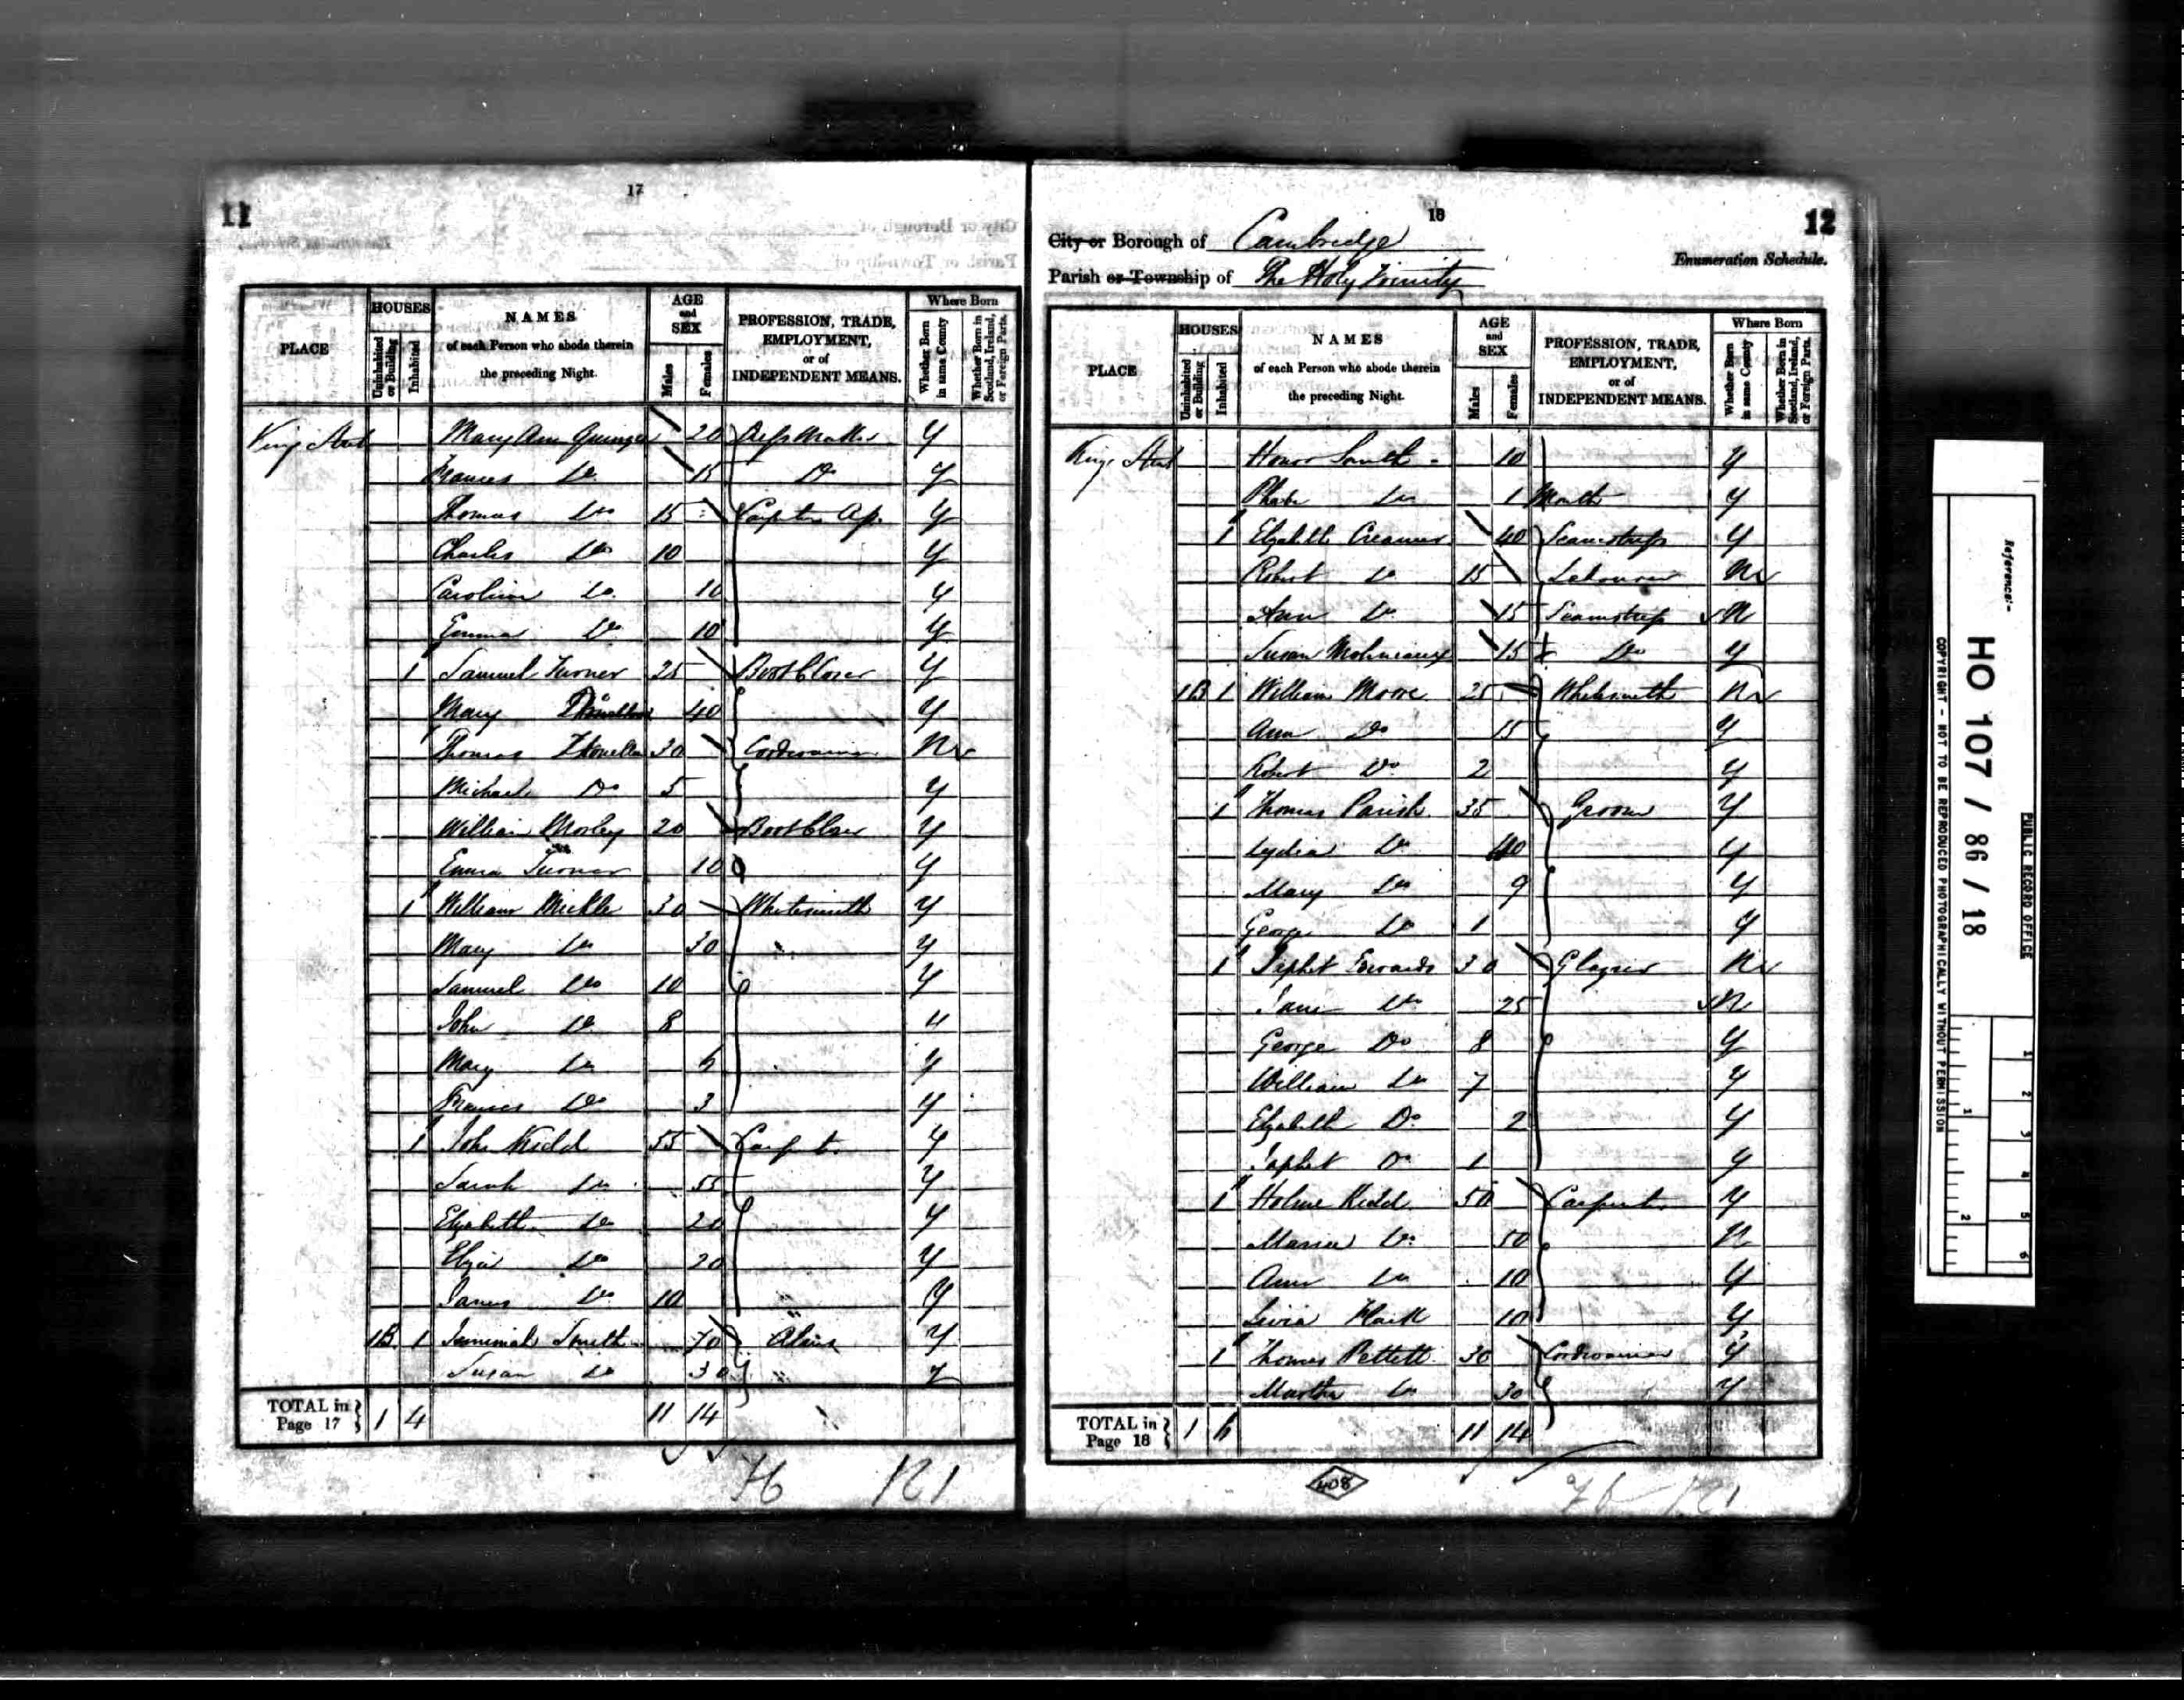 11
17
HOUSES
NAMES
AGE and SEX
Where Born
PLACE
Uninhabited or Building
Inhabited
of each Person who abode therein the preceding Night.
Males
Females
PROFESSION, TRADE, EMPLOYMENT, or of INDEPENDENT MEANS.
Whether Born in same County
Whether Born in Scotland, Ireland, or Foreign Parts.
King Street Mary Ann 20 Y
Frances Do 15 Do Y
Thomas Do 15 Y
Charles Do 10 Y
Caroline Do 10 Y
Emma Do 10 Y
1 Samuel Turner 25 Boot Closer Y
Mary 40 Y
Thomas 30 Cordwainer N
Michael Do 5 Y
William Morley 20 Boot Closer Y
Emma Turner 10 Y
1 William Mickle 30 Whitesmith Y
Mary Do 30 Y
Samuel Do 10 Y
John Do 8 Y
Mary Do 6 Y
Frances Do 3 Y
1 John Kidd 55 Carpt. Y
Sarah Do 55 Y
Elizabeth Do 20 Y
Eliza Do 20 Y
James Do 10 Y
1B 1 Jemimah Smith 70 Y
Susan Do 30 Y
TOTAL in Page 17 } 1 4 11 14
76 121
18
12
City or Borough of Cambridge
Enumeration Schedule.
Parish or Township of The Holy Trinity
HOUSES
NAMES
AGE and SEX
Where Born
PLACE
Uninhabited or Building
Inhabited
of each Person who abode therein the preceding Night.
Males
Females
PROFESSION, TRADE, EMPLOYMENT, or of INDEPENDENT MEANS.
Whether Born in same County
Whether Born in Scotland, Ireland, or Foreign Parts.
King Street Honor Smith 10 Y
Phebe Do 1 Month Y
1 Elizabeth Creamer 40 Seamstress Y
Robert Do 15 Labourer N
Ann Do 15 Seamstress N
Susan Molineaux 15 Do Y
1B 1 William Moore 25 Whitesmith N
Ann Do 15 Y
Robert Do 2 Y
1 Thomas Parish 35 Groom Y
Lydia Do 40 Y
Mary Do 9 Y
George Do 1 Y
1 Japhet Edwards 30 Glazier N
Jane Do 25 N
George Do 8 Y
William Do 7 Y
Elizabeth Do 2 Y
Japhet Do 1 Y
1 Holme Kidd 50 Carpenter Y
Maria Do 50 N
Ann Do 10 Y
10 Y
1 Thomas Pettett 30 Cordwainer Y
Martha Do 30 Y
TOTAL in Page 18 } 1 6 11 14
408
76 121
Reference:-
HO 107 / 86 / 18
PUBLIC RECORD OFFICE
COPYRIGHT - NOT TO BE REPRODUCED PHOTOGRAPHICALLY WITHOUT PERMISSION
1
2
1
2
3
4
5
6